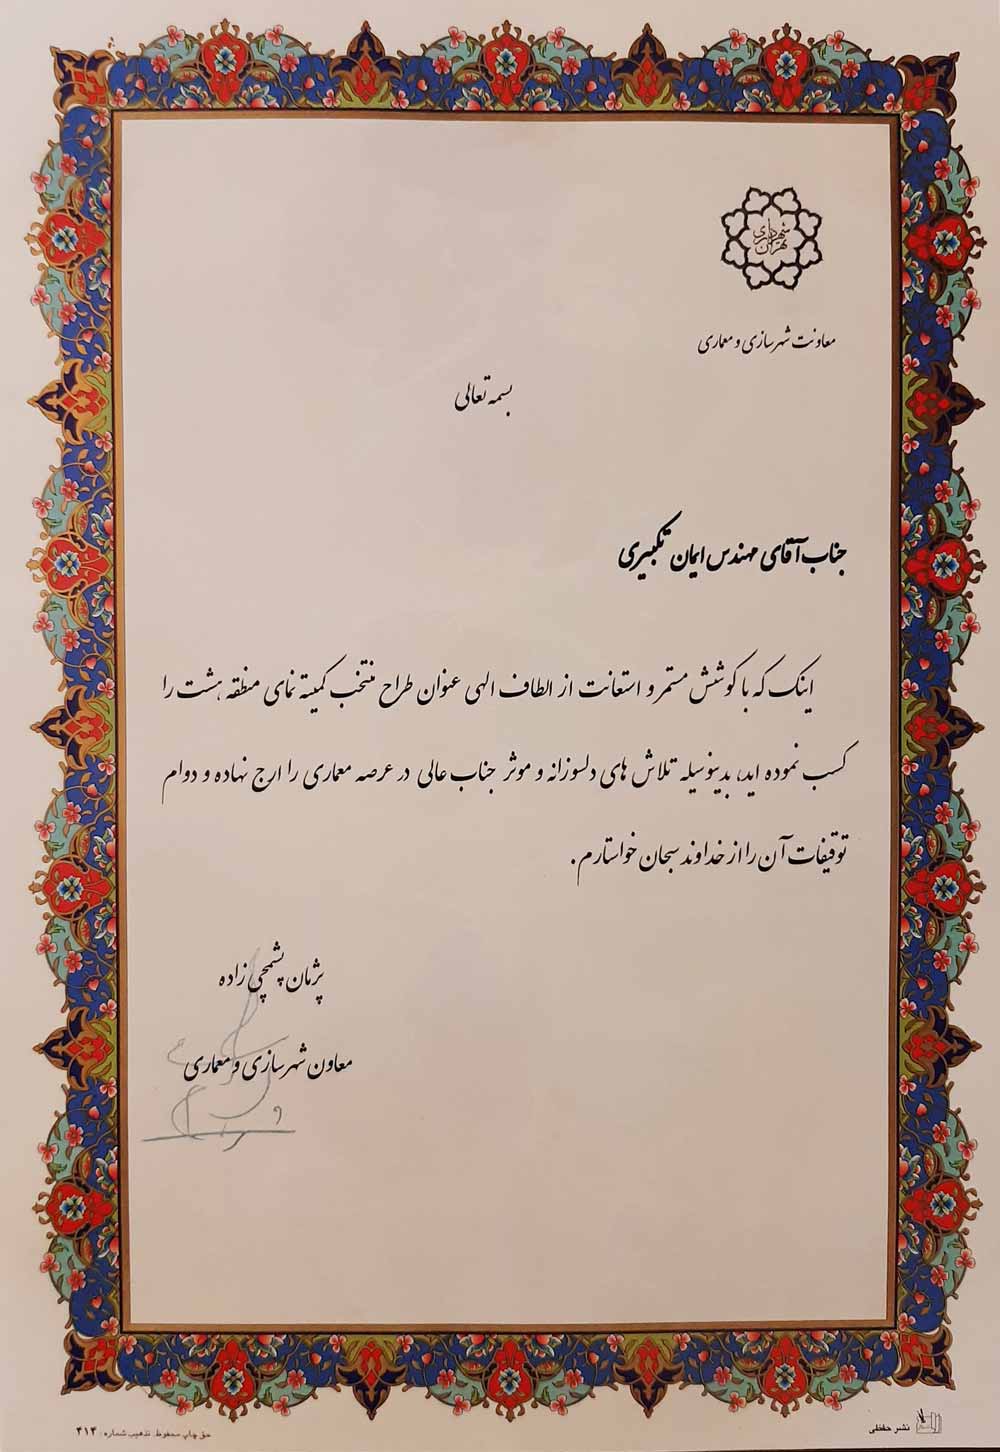 شهرداری تهران
معاونت شهرسازی و معماری
بسمه تعالی
جناب آقای مهندس ایمان تکبیری
اینک که با کوشش مستمر و استعانت از الطاف الهی عنوان طراح منتخب کمیته نمای منطقه هشت را
کسب نموده اید، بدینوسیله تلاش های دلسوزانه و موثر جناب عالی در عرصه معماری را ارج نهاده و دوام
توفیقات آن را از خداوند سبحان خواستارم.
پژمان پشمچی زاده
معاون شهرسازی و معماری
نشر حفظی
حق چاپ محفوظ. تذهیب شماره: ۴۱۴